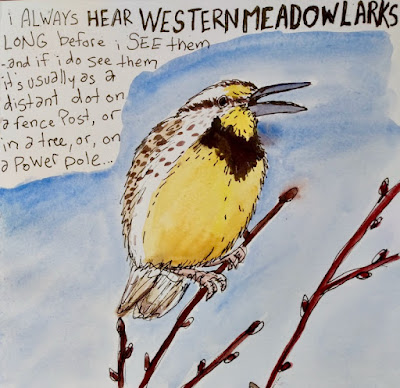 i ALWAYS HEAR WESTERN MEADOWLARKS
LONG before i SEE them
-and if i do see them
it's usually as a
distant dot on
a fence Post, or
in a tree, or, on
a PoweR pole...